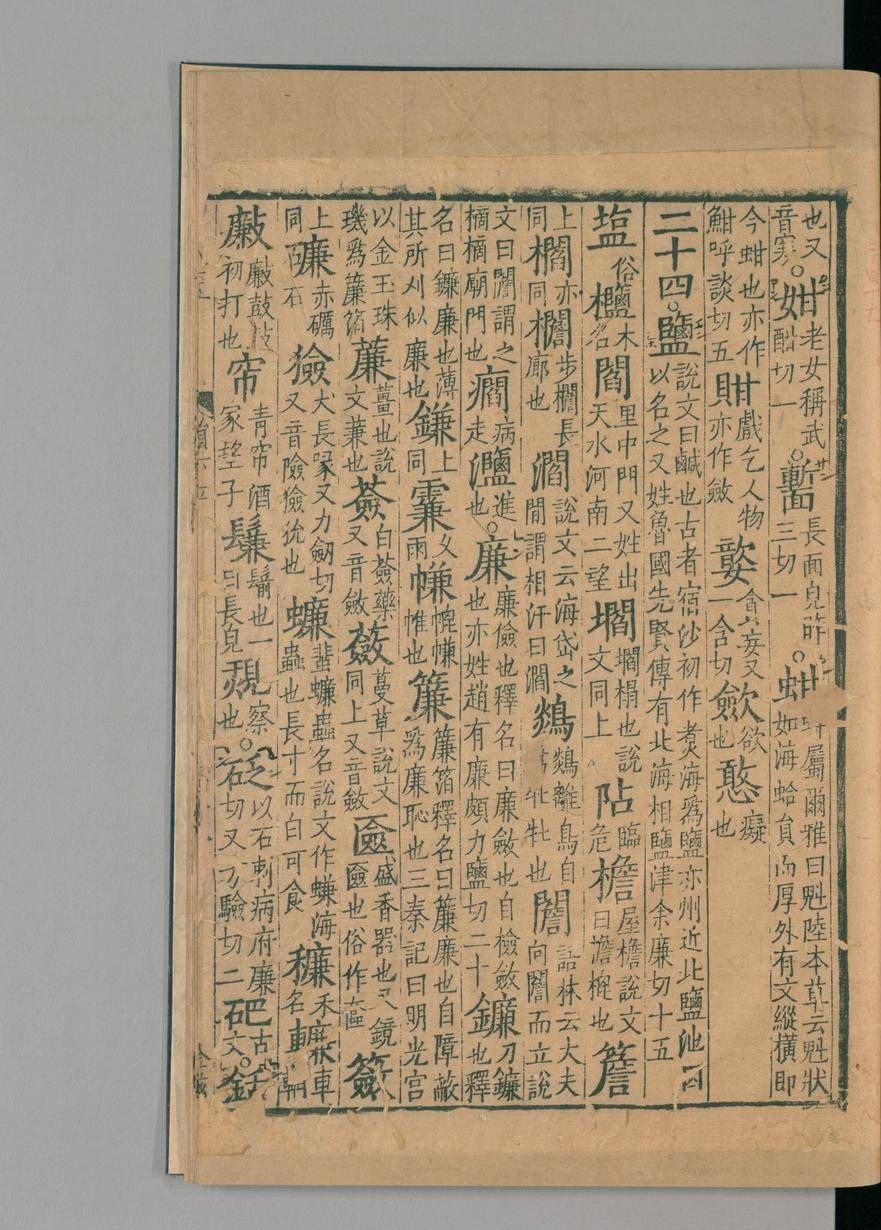 也又音寒。姏老女稱武酣切一。䫡長面皃昨三切一。蚶蚌屬爾雅曰魁陸本草云魁狀如海蛤員而厚外有文縱橫即
今蚶也亦作魽呼談切五㽐戲乞人物亦作歛㜝貪妄又一含切歛欲也憨癡也
二十四。鹽說文曰鹹也古者宿沙初作煑海爲鹽亦州近北鹽池因以名之又姓魯國先賢傳有北海相鹽津余廉切十五
塩俗㰊木名閻里中門又姓出天水河南二望壛壛榻也說文同上阽臨危檐屋檐說文曰檐梍也簷
上同櫩亦同㯗步櫩長廊也㵎說文云海岱之間謂相汙曰㵎鷣鷣離鳥自爲牝牡也閻語林云大夫向閻而立說
文曰閻謂之樀樀廟門也癎病走灩進也。廉廉儉也釋名曰廉斂也自檢斂也亦姓趙有廉頗力鹽切二十鐮刀鐮也釋
名曰鐮廉也薄其所刈似廉也鎌上同霖久雨㡘幌㡘帷也簾簾箔釋名曰簾廉也自障蔽爲廉恥也三秦記曰明光宮
以金玉珠璣爲簾箔薕薑也說文蒹也薟白薟藥又音斂蘞蔓草說文同上又音斂匳盛香器也又鏡匳也俗作奩籢
上同磏赤礪石獫犬長喙又力劒切又音險獫狁也蠊蜚蠊蟲名說文作螊海蟲也長寸而白可食穅禾名𨎷車
𪎮鼓鼓初打也帘青帘酒家望子鬑鬋也一曰長皃覝察也。砭以石刺病府廉切又方驗切二䂪古文。銛